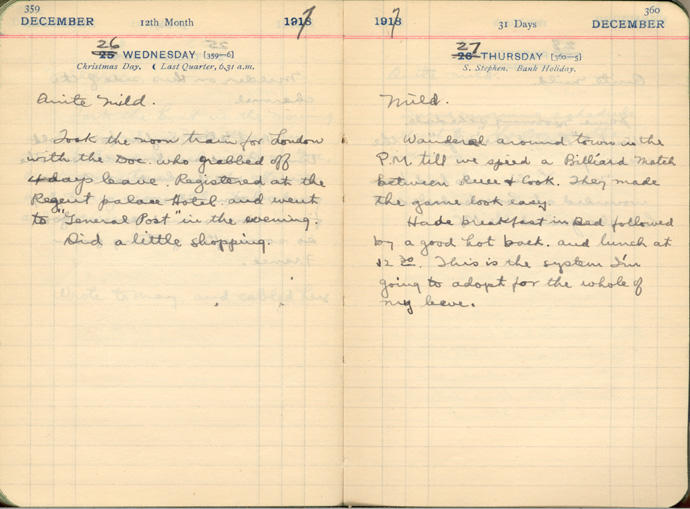 359
DECEMBER 12th Month 1917
26
25 WEDNESDAY [359—6]
Christmas Day. ( Last Quarter, 6.31 a.m.
Quite Mild.
Took the noon train for London
with the Doc. who grabbed off
4 days leave. Registered at the
Regent palace Hotel and went
to "General Post" in the evening.
Did a little shopping.
360
1917 31 Days DECEMBER
27
26 THURSDAY [360—5]
S. Stephen. Bank Holiday.
Mild.
Wandered around town in the
P.M. till we spied a Billiard Match
between Reece & Cook. They made
the game look easy.
Had breakfast in Bed followed
by a good hot bath. and lunch at
12 30. This is the system I'm
going to adopt for the whole of
my leave.